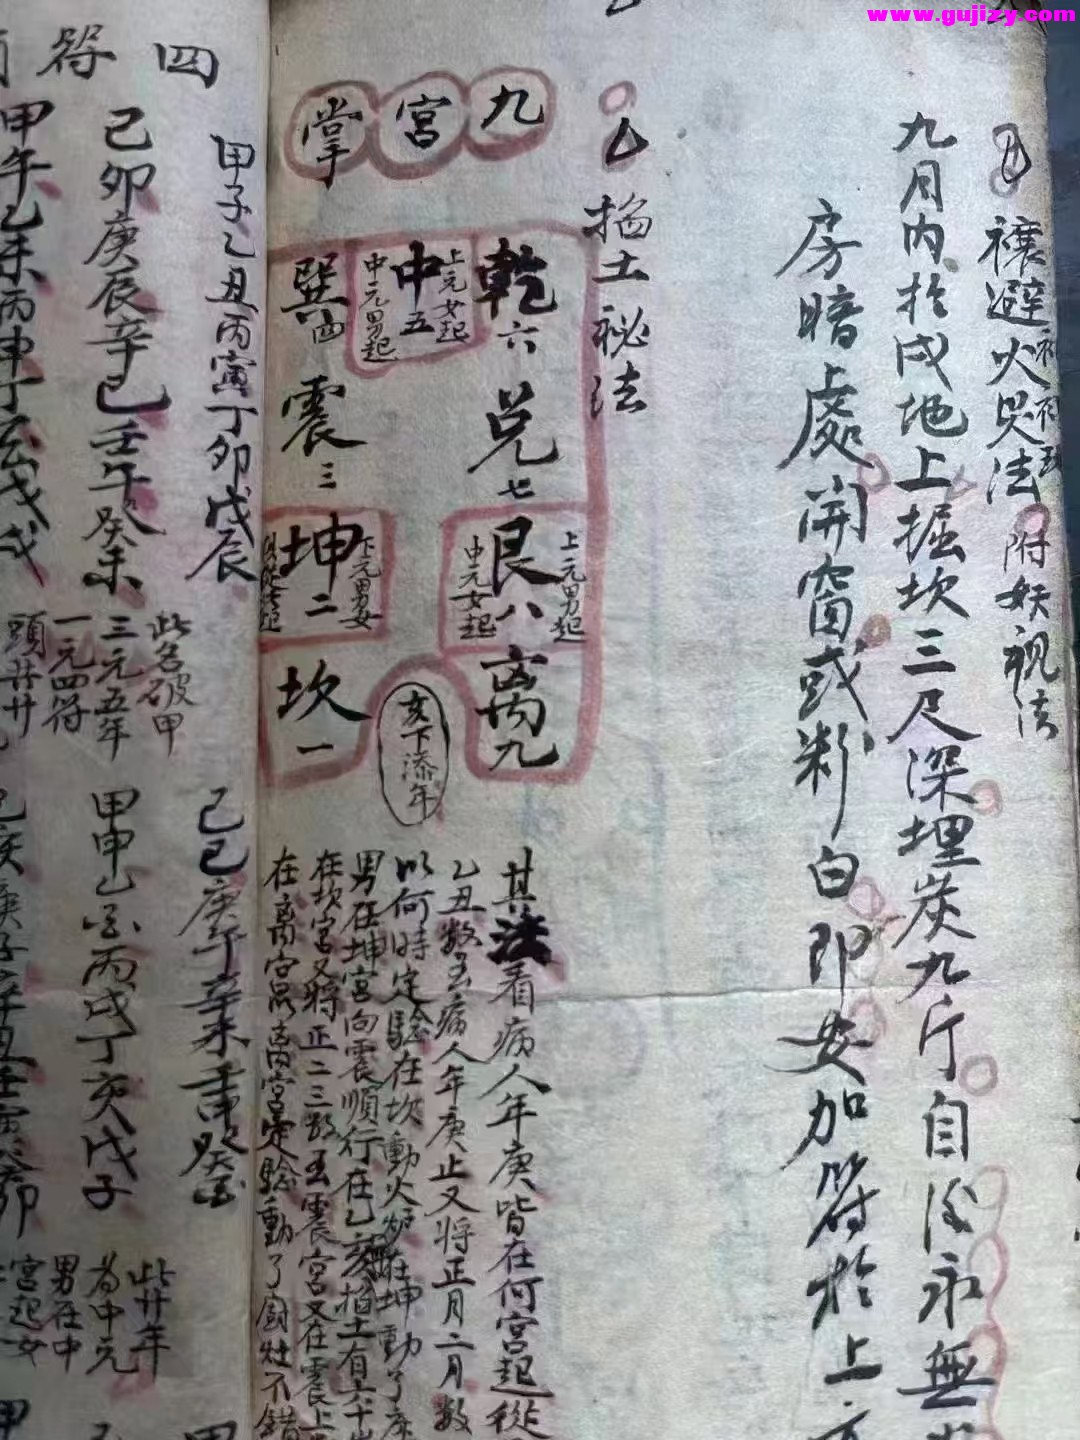 www.gujizy.com
禳避火災法
附妖視法
九月內於戌地上掘坎三尺深埋炭九斤自後永無
房暗處開窗或粉白即安加符於上
掐土秘法
九宮掌
乾六 兌七 艮八 離九
上元女起
中五
中元男起
上元男起
中元女起
巽四 震三 坤二 坎一
下元男女
亥下添年
其法看病人年庚皆在何宮起從
乙丑數至病人年庚止又將正月二月數
以何時定驗在坎動火炉在坤動了
男在坤宮向震順行在乙亥掐土有六十
在坎宮又將正二三數至震宮又在震上
在离宮是离宮定驗動了廚灶不錯
四符頭
甲子乙丑丙寅丁卯戊辰
己巳庚午辛未壬申癸酉
己卯庚辰辛巳壬午癸未
此名破甲
三元五年
一元四符
頭廿廿
甲申乙酉丙戌丁亥戊子
此廿年
為中元
男在中
宮起女
甲午乙未丙申丁酉戊戌
己亥庚子辛丑壬寅癸卯